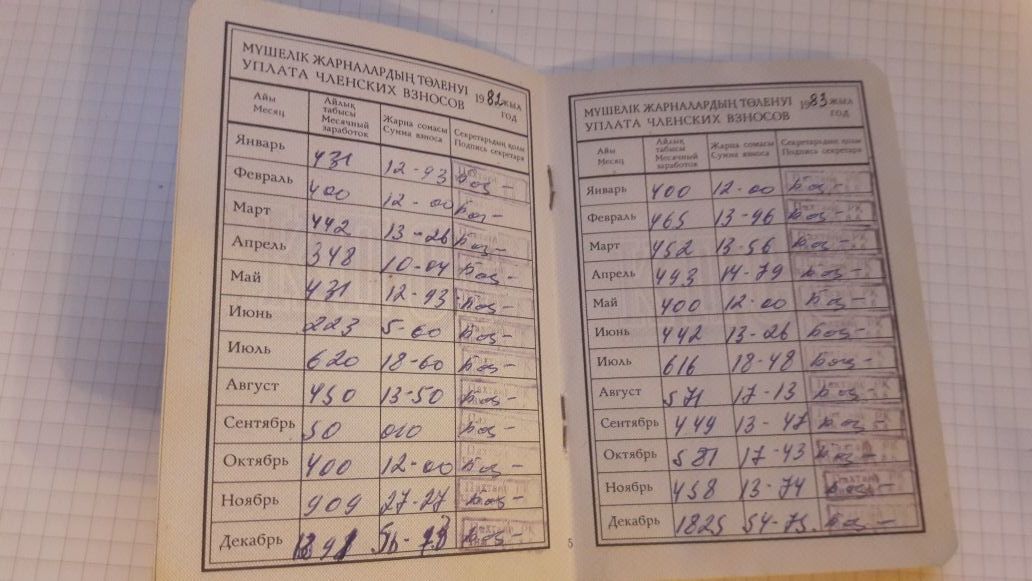 МҮШЕЛІК ЖАРНАЛАРДЫҢ ТӨЛЕНУІ 1982 ЖЫЛ
УПЛАТА ЧЛЕНСКИХ ВЗНОСОВ ГОД
Айы Месяц Айлық табысы Месячный заработок Жарна сомасы Сумма взноса Секретардың қолы Подпись секретаря
Январь 431 12-93
Февраль 400 12-00
Март 442 13-26
Апрель 348 10-04
Май 431 12-93
Июнь 223 5-60
Июль 620 18-60
Август 450 13-50
Сентябрь 50 010
Октябрь 400 12-00
Ноябрь 909 27-27
Декабрь
5
МҮШЕЛІК ЖАРНАЛАРДЫҢ ТӨЛЕНУІ 1983 ЖЫЛ
УПЛАТА ЧЛЕНСКИХ ВЗНОСОВ ГОД
Айы Месяц Айлық табысы Месячный заработок Жарна сомасы Сумма взноса Секретардың қолы Подпись секретаря
Январь 400 12-00
Февраль 465 13-96
Март 452 13-56
Апрель 493 14-79
Май 400 12-00
Июнь 442 13-26
Июль 616 18-48
Август 571 17-13
Сентябрь 449 13-47
Октябрь 581 17-43
Ноябрь 458 13-74
Декабрь 1825 54-75